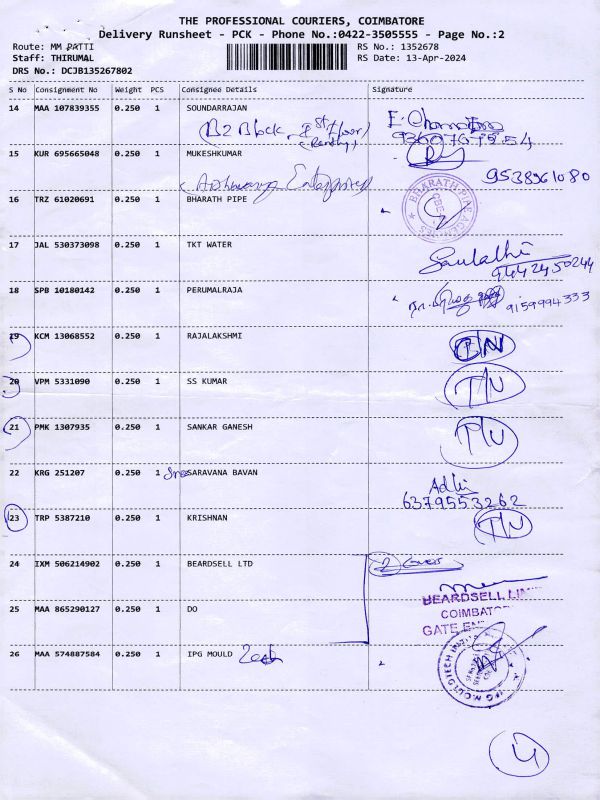 THE PROFESSIONAL COURIERS, COIMBATORE
Delivery Runsheet - PCK - Phone No.:0422-3505555 - Page No.:2
Route: MM PATTI
RS No.: 1352678
Staff: THIRUMAL
RS Date: 13-Apr-2024
DRS No.: DCJB135267802
S No Consignment No Weight PCS Consignee Details Signature
14 MAA 107839355 0.250 1 SOUNDARRAJAN
B2 Block, Ist Floor
15 KUR 695665048 0.250 1 MUKESHKUMAR
9538961080
Enterprises
16 TRZ 61020691 0.250 1 BHARATH PIPE
BHARATH PIPE AGENCIES
CBE
17 JAL 530373098 0.250 1 TKT WATER
9442450244
18 SPB 10180142 0.250 1 PERUMALRAJA
9159994333
19 KCM 13068552 0.250 1 RAJALAKSHMI
20 VPM 5331090 0.250 1 SS KUMAR
21 PMK 1307935 0.250 1 SANKAR GANESH
22 KRG 251207 0.250 1 Sree SARAVANA BAVAN
Adhi
6379553262
23 TRP 5387210 0.250 1 KRISHNAN
24 IXM 506214902 0.250 1 BEARDSELL LTD 2 covers
BEARDSELL LIM
25 MAA 865290127 0.250 1 DO
COIMBAT
GATE EN
26 MAA 574887584 0.250 1 IPG MOULD
4